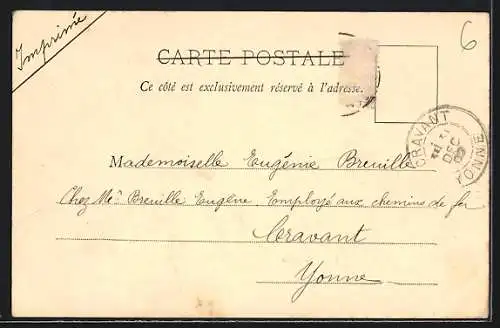 Imprimée
6
CARTE POSTALE
Ce côté est exclusivement réservé à l'adresse.
CRAVANT
DEC
YONNE
Mademoiselle Eugénie Breuillé
Chez Mr Breuillé Eugène, Employé aux chemins de fer
Cravant
Yonne